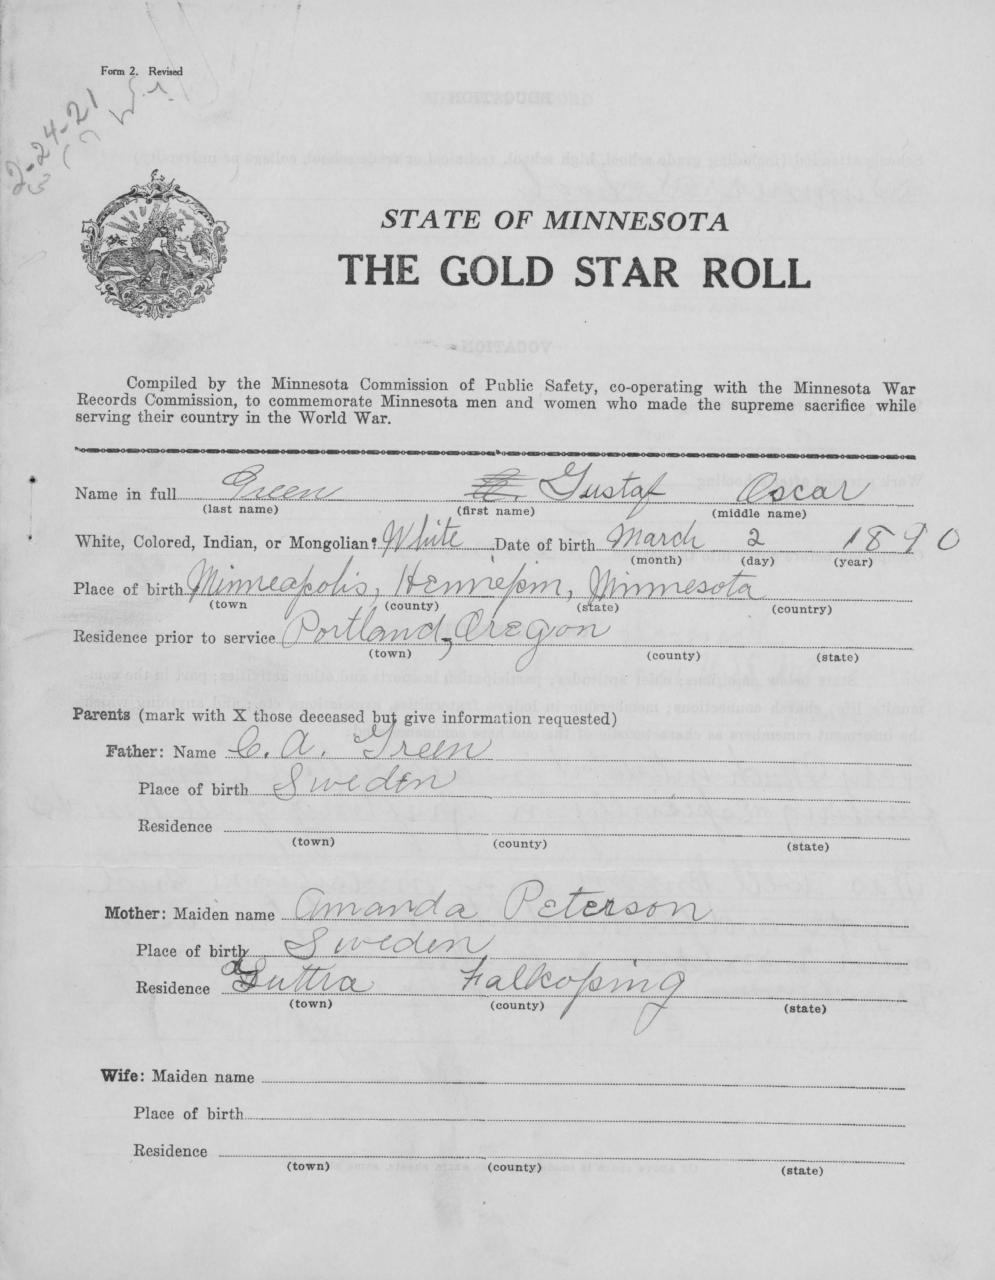 Form 2. Revised
2-24-21
STATE OF MINNESOTA
THE GOLD STAR ROLL
Compiled by the Minnesota Commission of Public Safety, co-operating with the Minnesota War
Records Commission, to commemorate Minnesota men and women who made the supreme sacrifice while
serving their country in the World War.
Name in full Green Gustaf Oscar
(last name) (first name) (middle name)
White, Colored, Indian, or Mongolian? White Date of birth March 2 1890
(month) (day) (year)
Place of birth Minneapolis, Hennepin, Minnesota
(town (county) (state) (country)
Residence prior to service Portland, Oregon
(town) (county) (state)
Parents (mark with X those deceased but give information requested)
Father: Name C. A. Green
Place of birth Sweden
Residence
(town) (county) (state)
Mother: Maiden name Amanda Peterson
Place of birth Sweden
Residence Luttra Falkoping
(town) (county) (state)
Wife: Maiden name
Place of birth
Residence
(town) (county) (state)